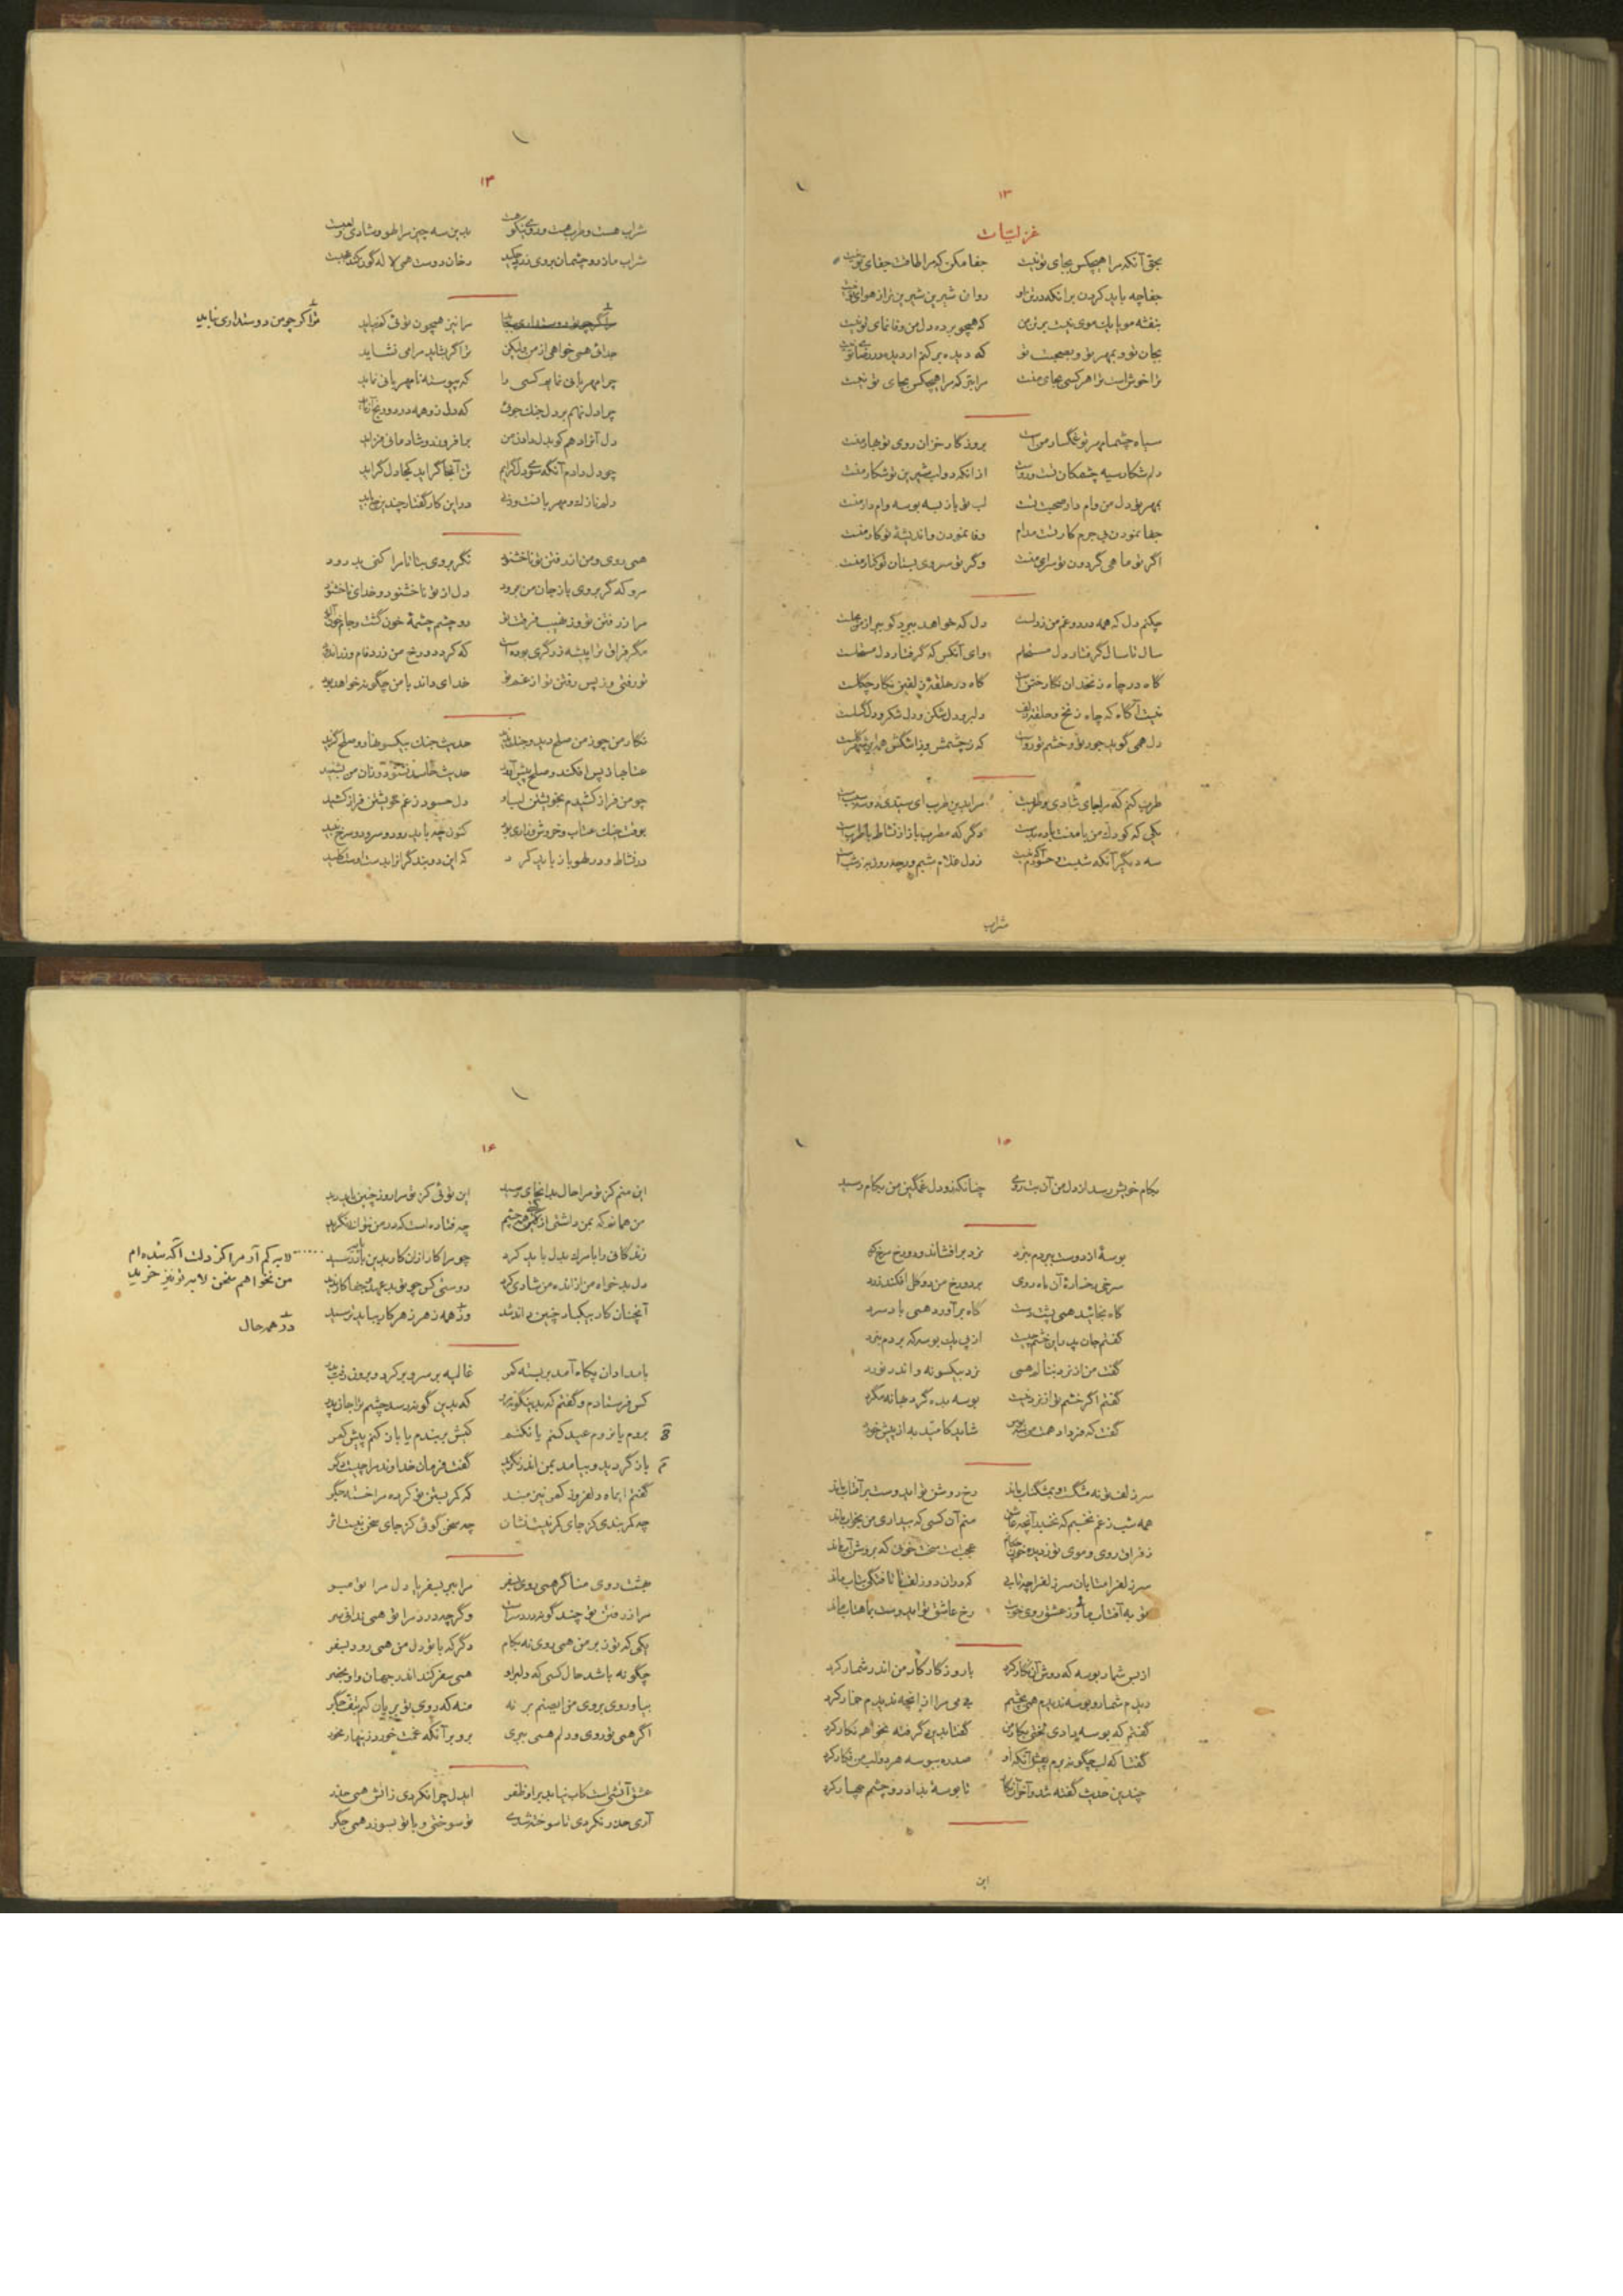 ۱۳
غزلیات
بحق آنکه مرا هیچکس بجای تو نیست جفا مکن که مرا طاقت جفای تو نیست
جفا چه باید کردن بر آنکه در تن او روان شیرین شیرین تر از هوای تو نیست
بنفشه مویا یک موی نیست بر تن من که همچو برده دل من وفا نمای تو نیست
بجان تو و بمهر تو و بصحبت تو که دیده بر کنم ار دیده در رضای تو نیست
ترا خوش است ترا هر کسی بجای منست مرا بتر که مرا هیچکس بجای تو نیست
سیاه چشما مهر تو غمگسار منست بروزگار خزان روی تو بهار منست
دلم شکار سیه چشمکان تست و رواست از آنکه دو لب شیرین تو شکار منست
بمهر تو دل من وام دار صحبت تست لب تو باز به بوسه وام دار منست
جفا نمودن بی جرم کار تست مدام وفا نمودن و اندیشهٔ تو کار منست
اگر تو ماهی گردون تو سرای منست وگر تو سروی بستان تو کنار منست
چکنم دل که همه درد و غم من ز دلست دل که خواهد ببرد کو ببر از من بحلست
سال تا سال گرفتار دل مستحلم وای آنکس که گرفتار دل مستحلست
گاه در چاه زنخدان نگار ختن است گاه در حلقهٔ زلفین نگار چگلست
نیست آگاه که چاه زنخ و حلقهٔ زلف دلبر و دل شکن و دل شکر و دل گسلست
دل همی گوید جور تو و خشم تو رواست که ز چشمش
طرب کنم که مرا جای شادی و طربست مرا بدین طرب ای سیدی دو سه سببست
یکی که کودک من با منست باده بدست دگر که مطرب با ساز نشاط با طربست
سه دیگر آنکه شبست و حسود آگه نیست ز دل غلام شبم ورچه روز به ز شبست
شراب
۱۴
شراب هست و طرب هست و روی نیکو هست بدین سه چیز مرا لهو و شادی و لعبست
شراب ما ز دو چشمان بروی زرد چکید رخان دوست همی لاله گون کند هیبت
ترا گر چو من دوستداری نباید مرا نیز همچون توئی کم نیاید
جدائی همی خواهی از من ولیکن ترا گر بشاید مرا می نشاید
چرا مهربانی نماید کسی را که پیوسته نامهربانی نماید
چرا دل نهم بر دل جنگ جوئی که دل زو همه درد و رنج آزماید
دل آنرا دهم کو بدل دادن من بیافروزد و شادمانی فزاید
چو دل دادم آنگه سوی دل گرایم تن آنجا گراید کجا دل گراید
دلم نازک و مهربانست در این کار گفتار چندین نباید
همی روی و من از رفتن تو ناخشنود نگر بروی بتا تا مرا کنی بدرود
مرو که گر بروی باز جان من برود دل از تو ناخشنود و خدای ناخشنود
مرا ز رفتن تو وز نهیب فرقت تو دو چشم چشمهٔ خون گشت و جامه خون آلود
مگر فراق ترا پیشه زرگری بوده است که کرد دو رخ من زرد فام و زر اندود
تو رفتی وز پس رفتن تو از غم تو خدای داند با من چگونه خواهد بود
نگار من چو ز من صلح دید و جنگ ندید حدیث جنگ بیکسو نهاد و صلح گزید
عتابها ز پس افکند و صلح پیش آورد حدیث حاسد نشنود و زان من بشنید
چو من فراز کشیدم بخویشتن لب او دل حسود ز غم خویشتن فراز کشید
بوقت جنگ عتاب و خروش و زاری بود کنون چه باید رود و سرود و سرخ نبید
در نشاط و در لهو باز باید کرد که این دو بند گرانرا بدست اوست کلید
۱۵
بکام خویش رسد از دل من آن بت ترکی چنانکه زو دل غمگین من بکام رسید
بوسهٔ از دوست ببردم بنرد نرد برافشاند و دو رخ سرخ کرد
سرخی رخسارهٔ آن ماه روی بر دو رخ من دو گل افکند زرد
گاه بخائید همی پشت دست گاه بر آورد همی باد سرد
گفتم جان پدر این خشم چیست از پی یک بوسه که بردم بنرد
گفت من از نرد بنالم همی نرد بیکسو نه و اندر نورد
گفتم اگر خشم تو از نرد نیست بوسه بده گرد بهانه مگرد
گفت که فردا دهمت من سه بوس شاید کامید به از پیش خورد
سر زلف تو نه مشگست و بمشگ ناب ماند رخ روشن تو ای دوست بر آفتاب ماند
همه شب ز غم نخسبم که نخسبد آنکه عاشق منم آن کسی که بیداری من بخواب ماند
ز فراق روی و موی تو ز دیده خون چکانم عجبست سخت خونی که بروشن آب ماند
سر زلف را متابان سر زلف را چه تابی که در آن دو زلف ناتافتگی بتاب ماند
تو به آفتاب مانی وز عشق روی خوبت رخ عاشق تو ای دوست بماهتاب ماند
از بس شمار بوسه که دوش آن نگار کرد با روزگار کار من اندر شمار کرد
دیدم شمار و بوسه ندیدم همی بچشم بی می مرا از آنچه ندیدم خمار کرد
گفتم که بوسه دادی لختی بکار من گفتا بدین گرفته نخواهم نگار کرد
گفتا که لب چگونه برم پیش آنکه او صد ره ببوسه هر دو لب من فگار کرد
چندین حدیث گفته شد و آخر آن نگار تا بوسهٔ بداد دو چشمم چهار کرد
این
۱۶
این منم کز تو مرا حال بدین جای رسید این توئی کز تو مرا روز چنین باید دید
من همانم که بمن داشتی از گیتی چشم چه فتاده است که در من نتوانی نگرید
زندگانی را با مرگ بدل باید کرد چو مرا کار از آن کار بدین پایه رسید
دل بدخواه من از انده من شادی کرد دوستی کس چو تو بد عهد و جفا کار ندید
آنچنان کار بیکبار چنین داند شد وز همه زهر ز هر کار بباید ترسید
«....... بر کم آر مرا کز دلت آگه شده ام
من نخواهم سخن لابه تو نیز خرید
در همه حال
بامدادان پگاه آمد بر بسته کمر غالیه بر سر و بر کرده و بیرون زده سر
کس فرستادم و گفتم که بدینگونه مرو که بدین گونه رسد چشم ترا جان پدر
بروم یا نروم عید کنم یا نکنم کبش بربندم یا باز کنم پیش کمر
باز گردید و بیامد بمن اندر نگرید گفت فرمان خداوند مرا چیست دگر
گفتم ای ماه دلفروز کمر نیز مبند که کمر بستن تو کرد مرا خسته جگر
چه کمر بندی کز جای کمر نیست نشان چه سخن گوئی کز جای سخن نیست اثر
بهشت روی منا گر همی روی بسفر مرا ببر بسفر یا دل مرا تو مبر
مرا ز رفتن تو چند گونه درد سراست وگر چه درد مرا تو همی ندانی سر
یکی که تو ز بر من همی روی نه بکام دگر که با تو دل من همی رود بسفر
چگونه باشد حال کسی که دلبر او همی سفر کند اندر جهان و او بحضر
بیا و روی بروی من ای صنم بر نه منه که روی تو بریان کنم بتف جگر
اگر همی تو روی ور دلم همی ببری برو بر آنکه غمت خورد زینهار مخور
عشق آتشی است کآب نیابد بر او ظفر ای دل چرا نکردی ز آتش همی حذر
آری حذر نکردی تا سوخته شدی تو سوختی و با تو بسوزد همی جگر